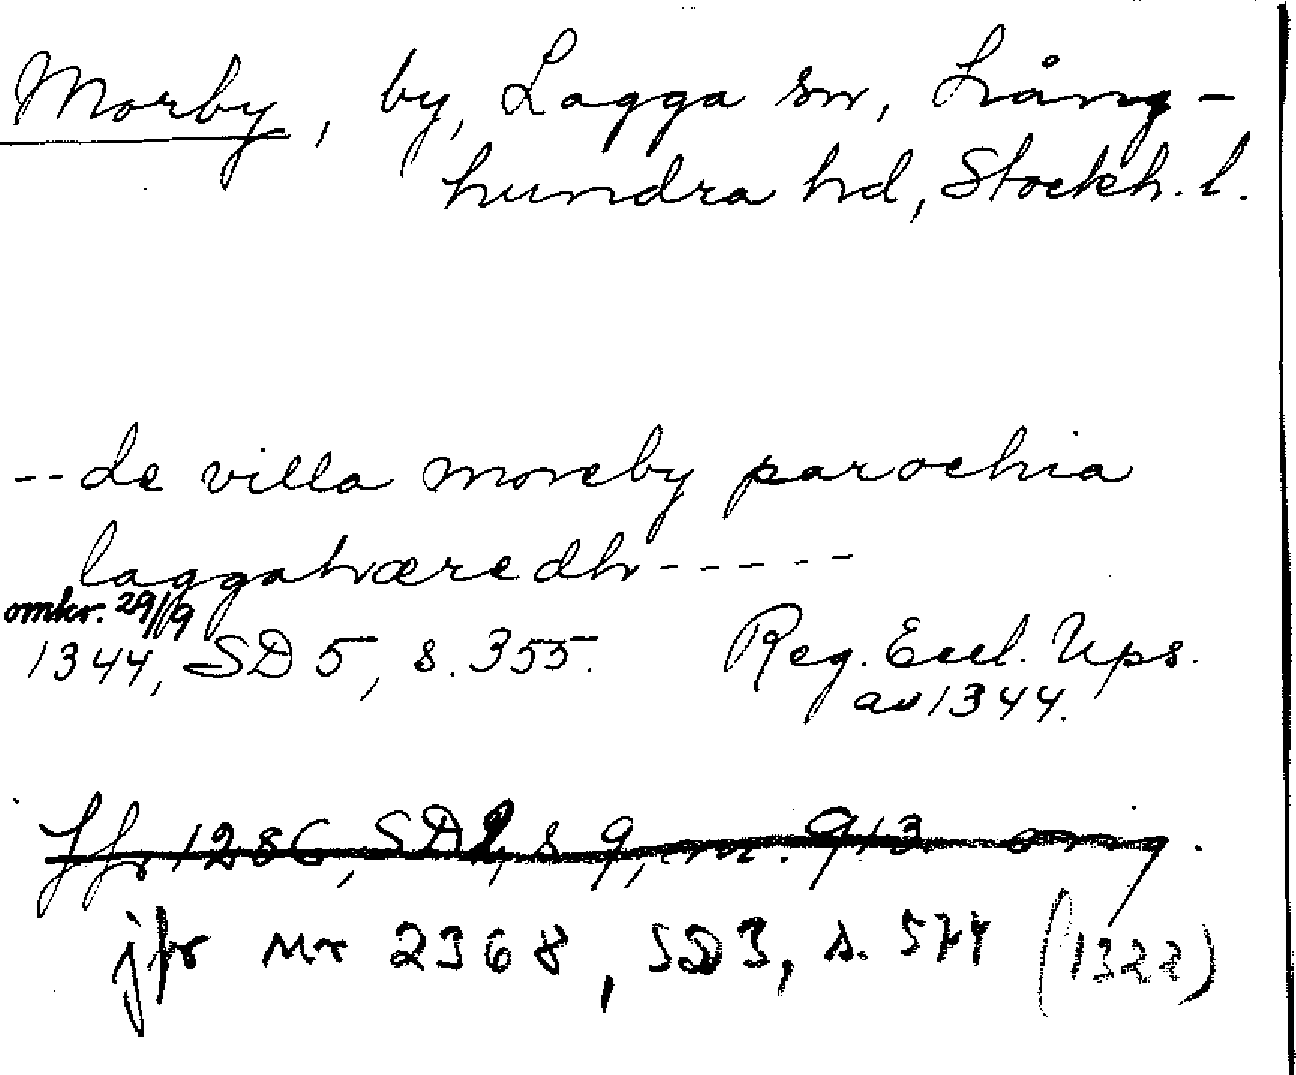 Morby, by, Lagga sn, Lång-
hundra hd, Stockh. l.
-- de villa moreby parochia
laggahæredh -----
omkr. 29/9
1344, SD 5, s. 355. Reg. Eccl. Ups.
av 1344.
Jfr 1286, SD 2, s 9, nr. 913 orig.
jfr nr 2368, SD3, s. 574 (1322)